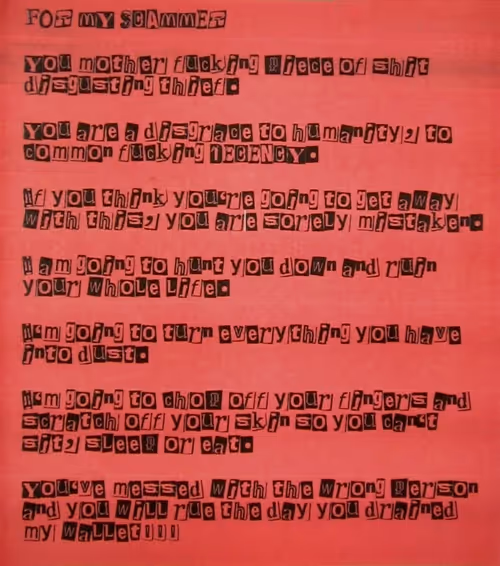 FOR MY SCAMMER
You mother fucking piece of shit
disgusting thief.
You are a disgrace to humanity, to
common fucking DECENCY.
if you think you're going to get away
with this, you are sorely mistaken.
i am going to hunt you down and ruin
your whole life.
i'm going to turn everything you have
into dust.
i'm going to chop off your fingers and
scratch off your skin so you can't
sit, sleep or eat.
You've messed with the wrong person
and you will rue the day you drained
my wallet!!!